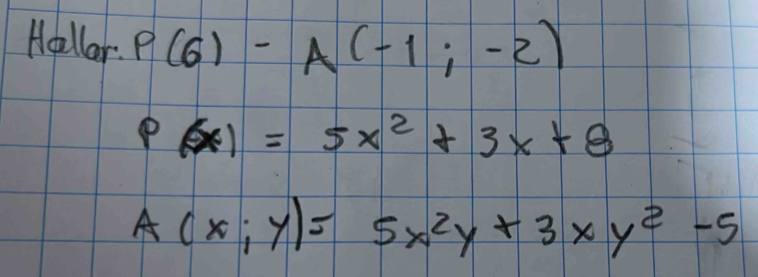 Hallar: P(6) - A(-1; -2)
P(x) = 5x² + 3x + 8
A(x; y) = 5x²y + 3xy² - 5